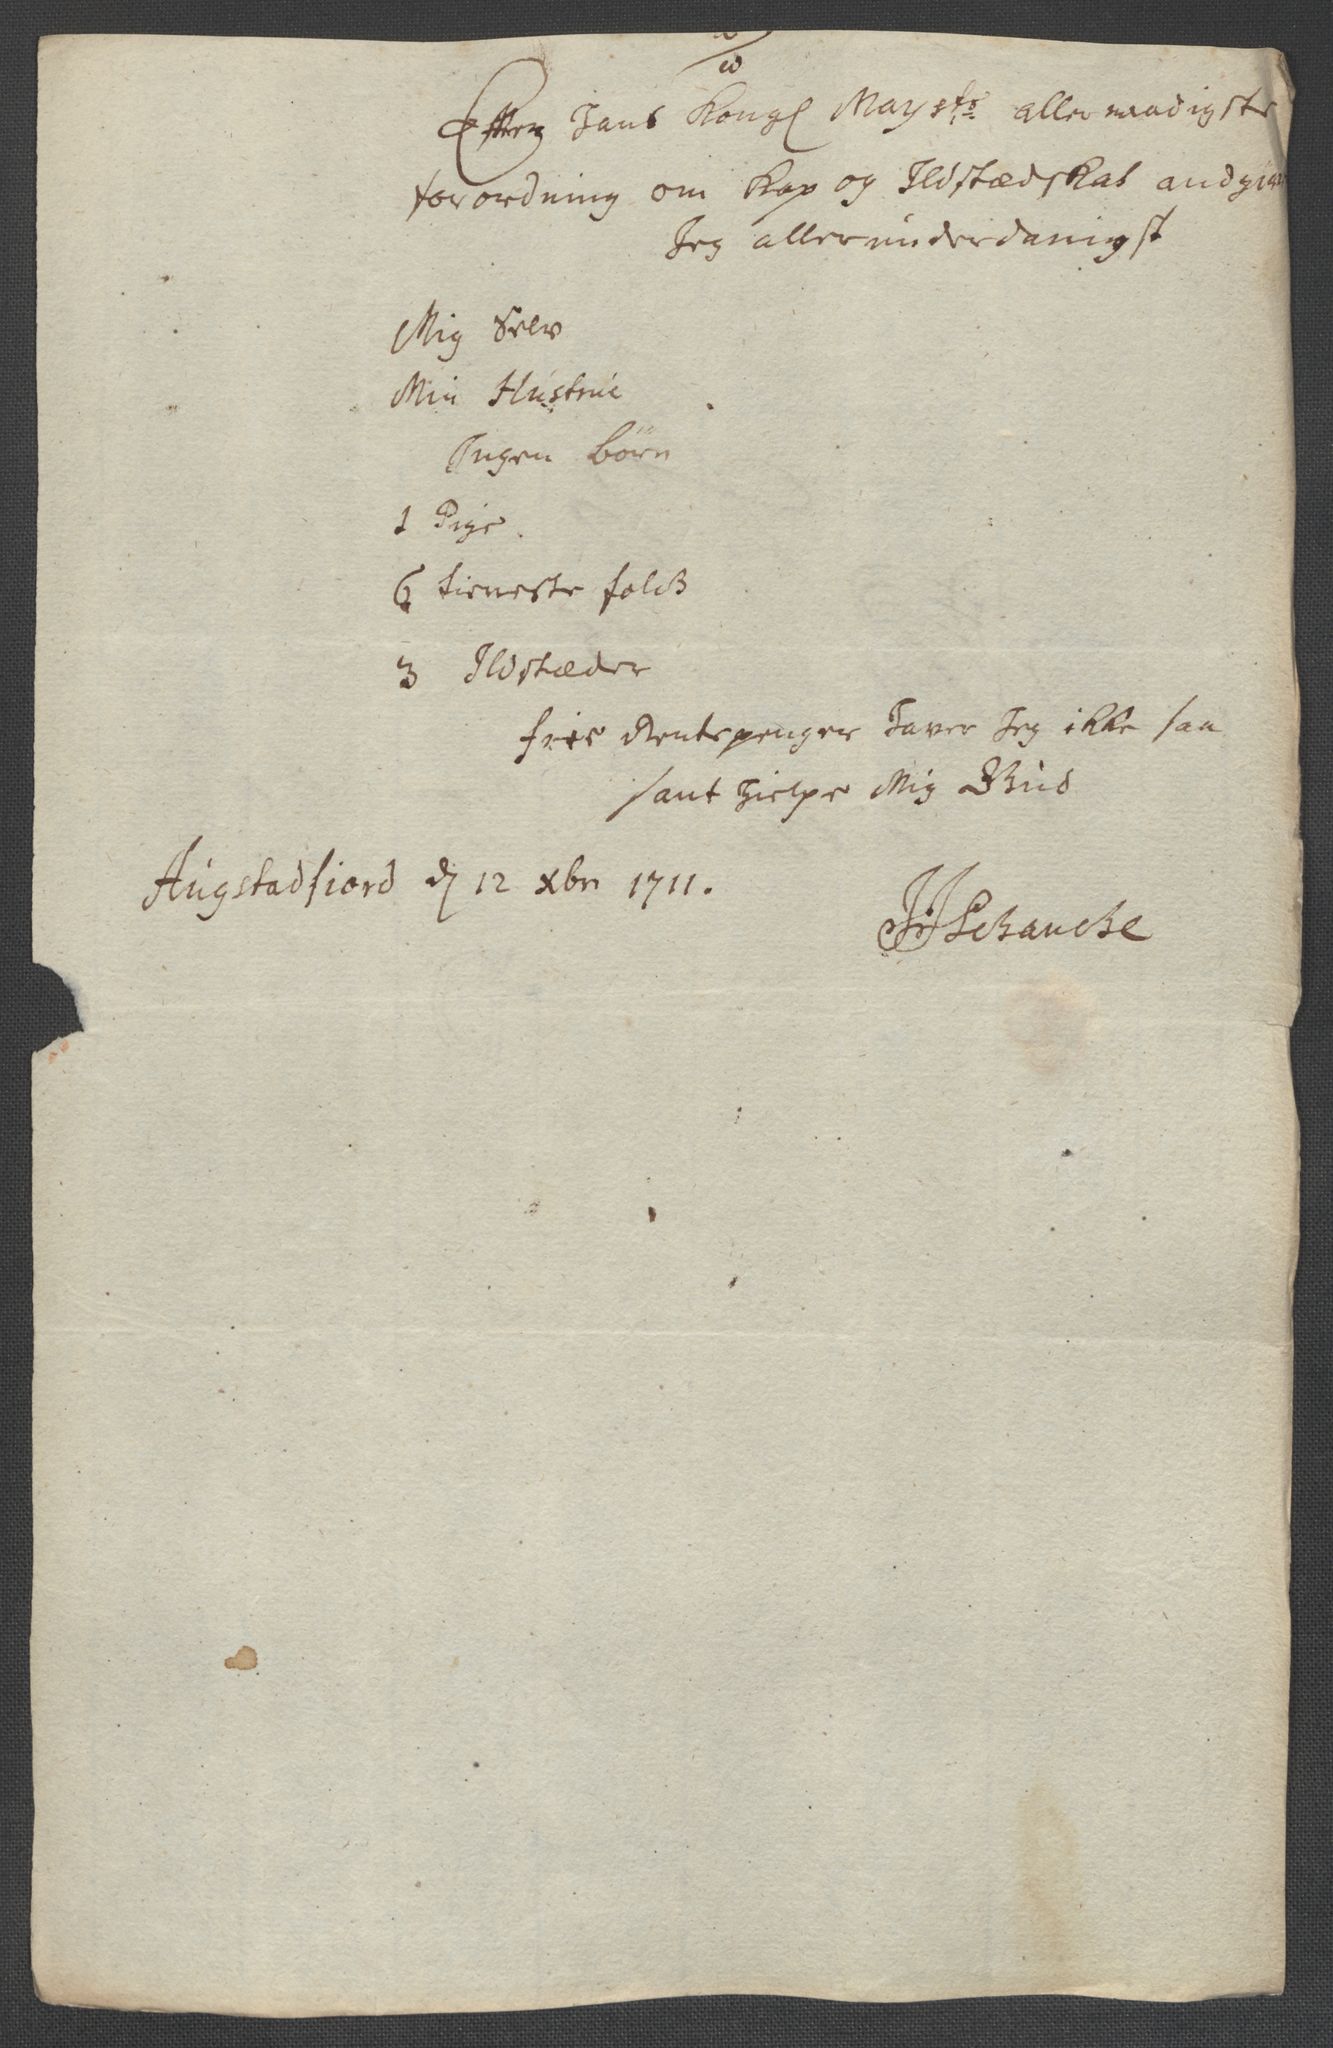 Effter Hans Kongl Maysts allernaadigste
forordning om Kop og Ildstædskat andgifuer
Jeg allerunderdanigst
Mig Selv
Min Hustrue
Ingen börn
1 Pige
6 tieneste folck
3 Ildstæder
frie Rentepenger haver Jeg ikke saa
sant hielpe Mig Gud
Augstadfiord d 12 xbr 1711.
JJSchancke